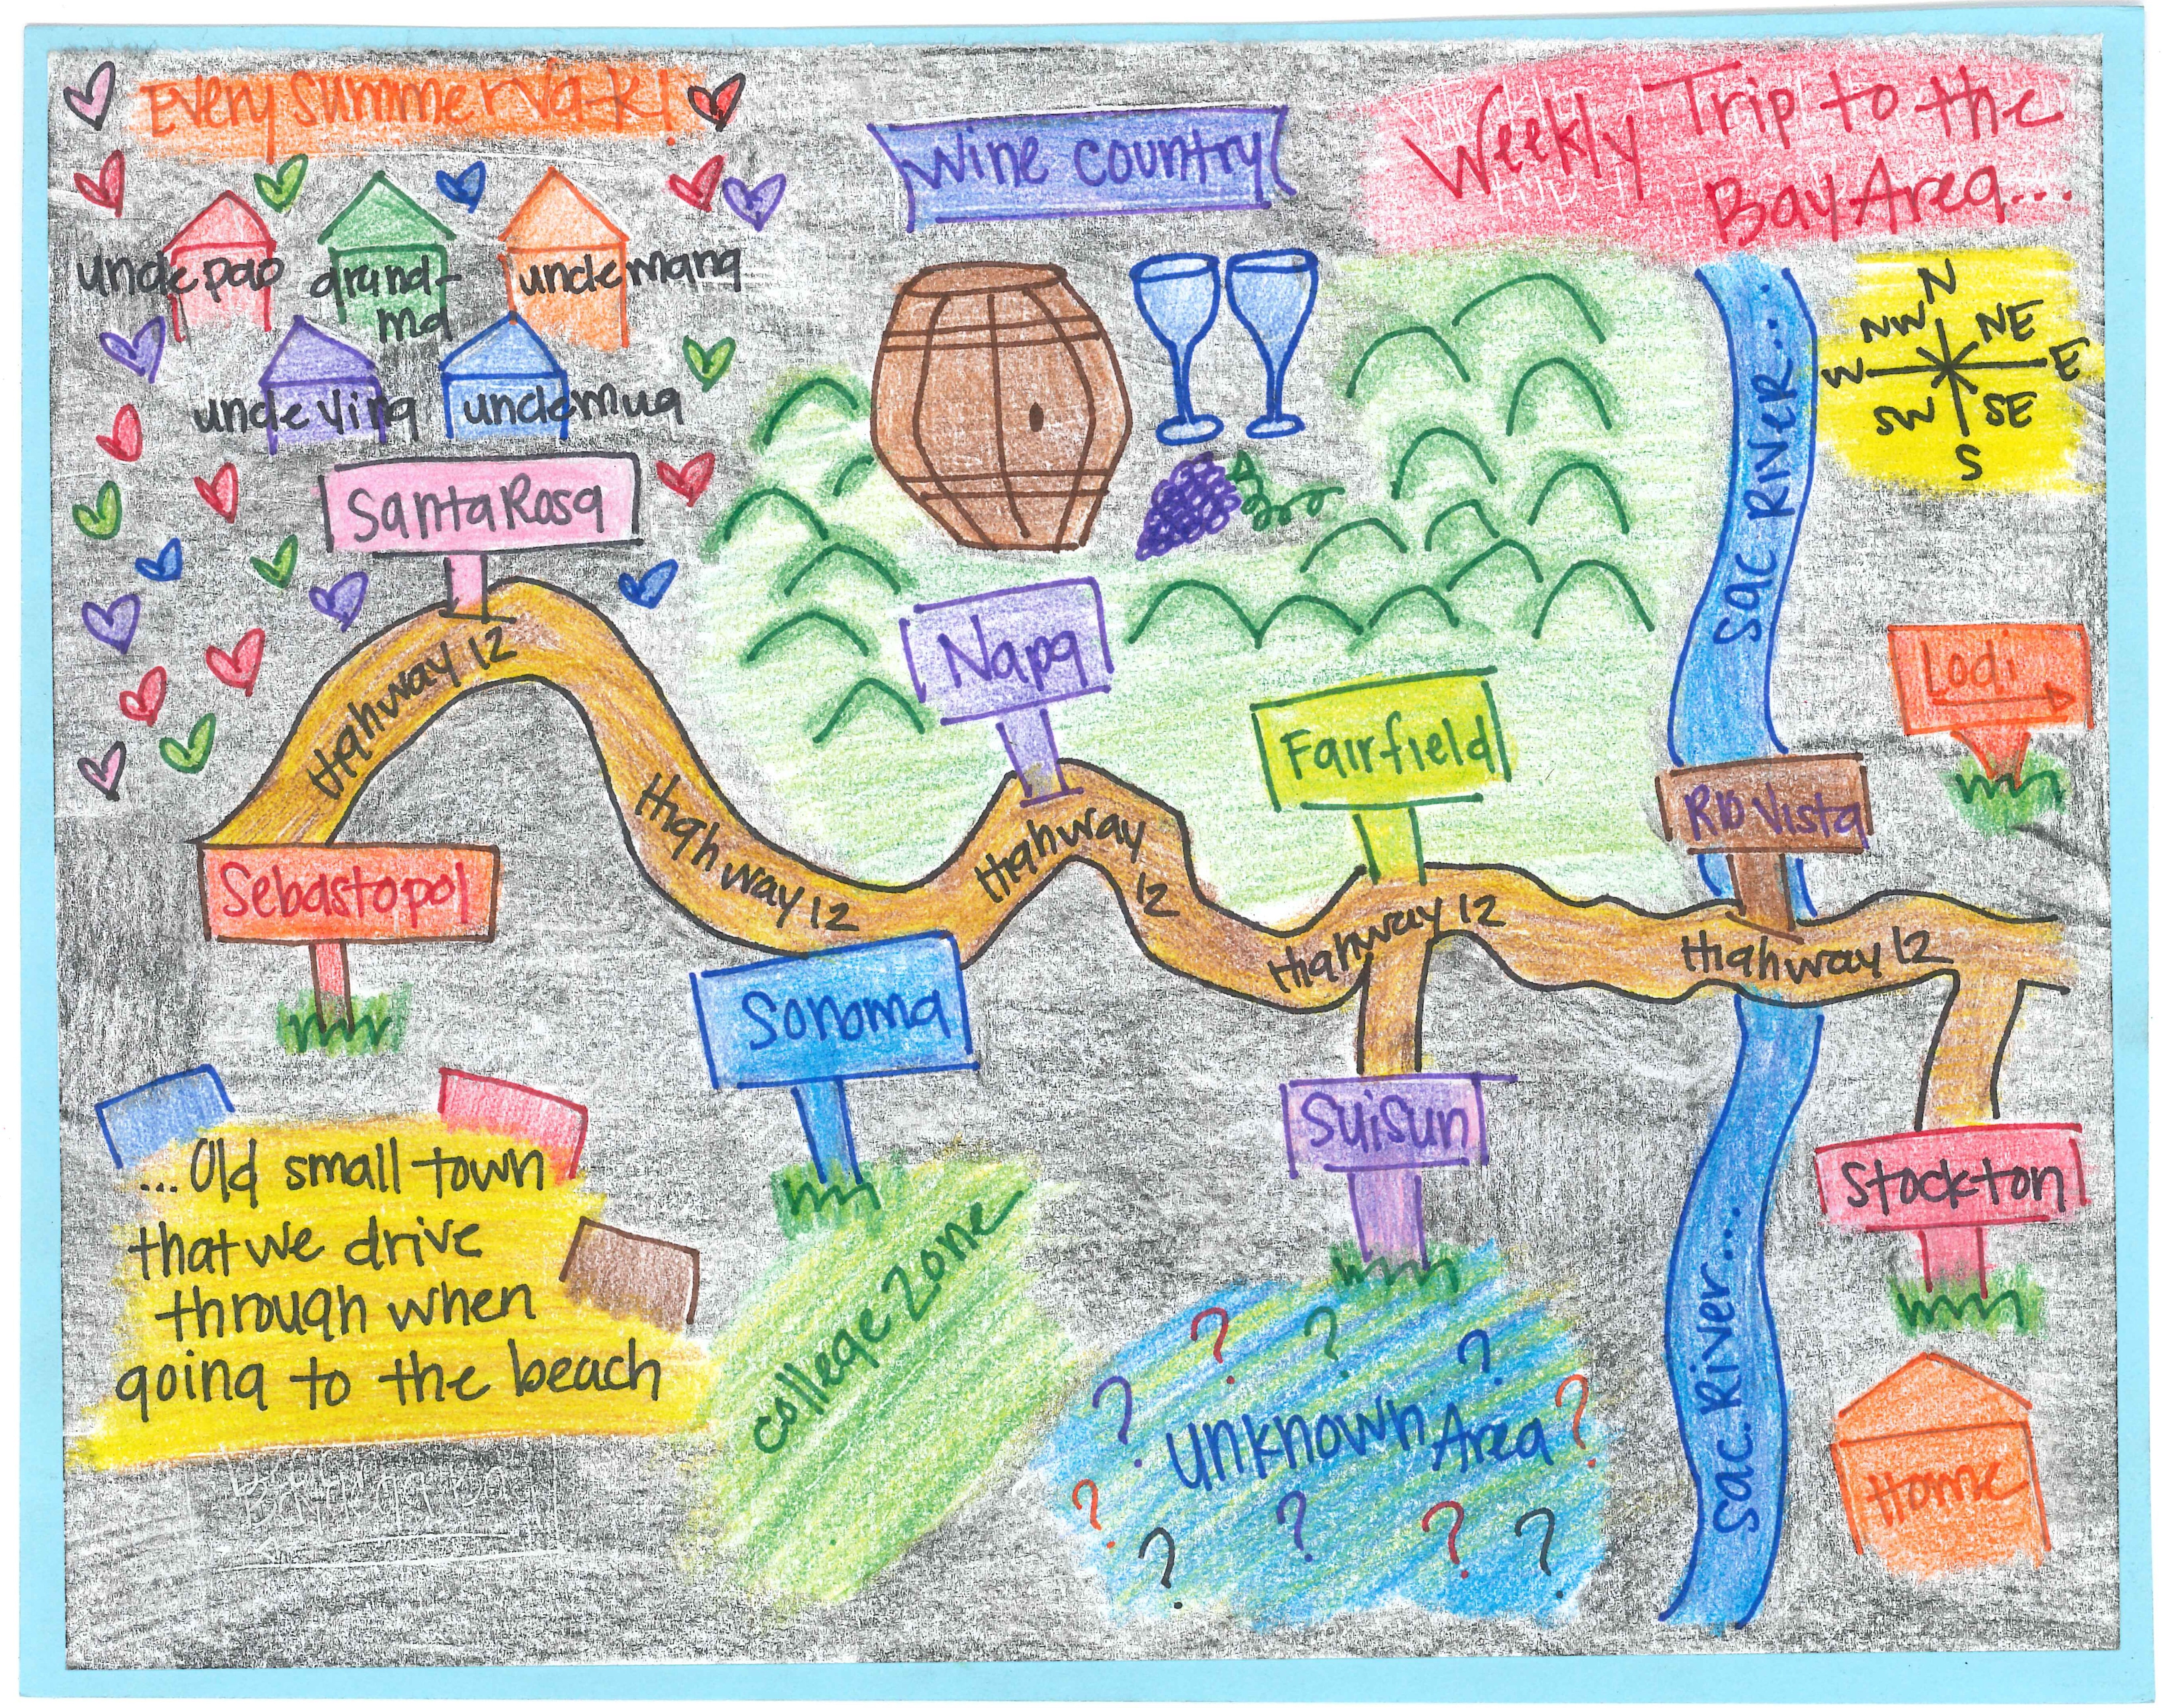 Every Summer Va-K!
Wine Country
Weekly Trip to the
Bay Area...
uncle pao
grand-
ma
uncle mang
uncle ying
uncle mua
N
NW
NE
W
E
SW
SE
S
Santa Rosa
Sac River...
Napa
Lodi
Fairfield
Rio Vista
Highway 12
Highway 12
Highway
12
Highway 12
Highway 12
Sebastopol
Sonoma
Suisun
Stockton
...Old small town
that we drive
through when
going to the beach
College Zone
Unknown Area
? ? ? ? ? ? ? ? ? ?
Sac. River...
Home